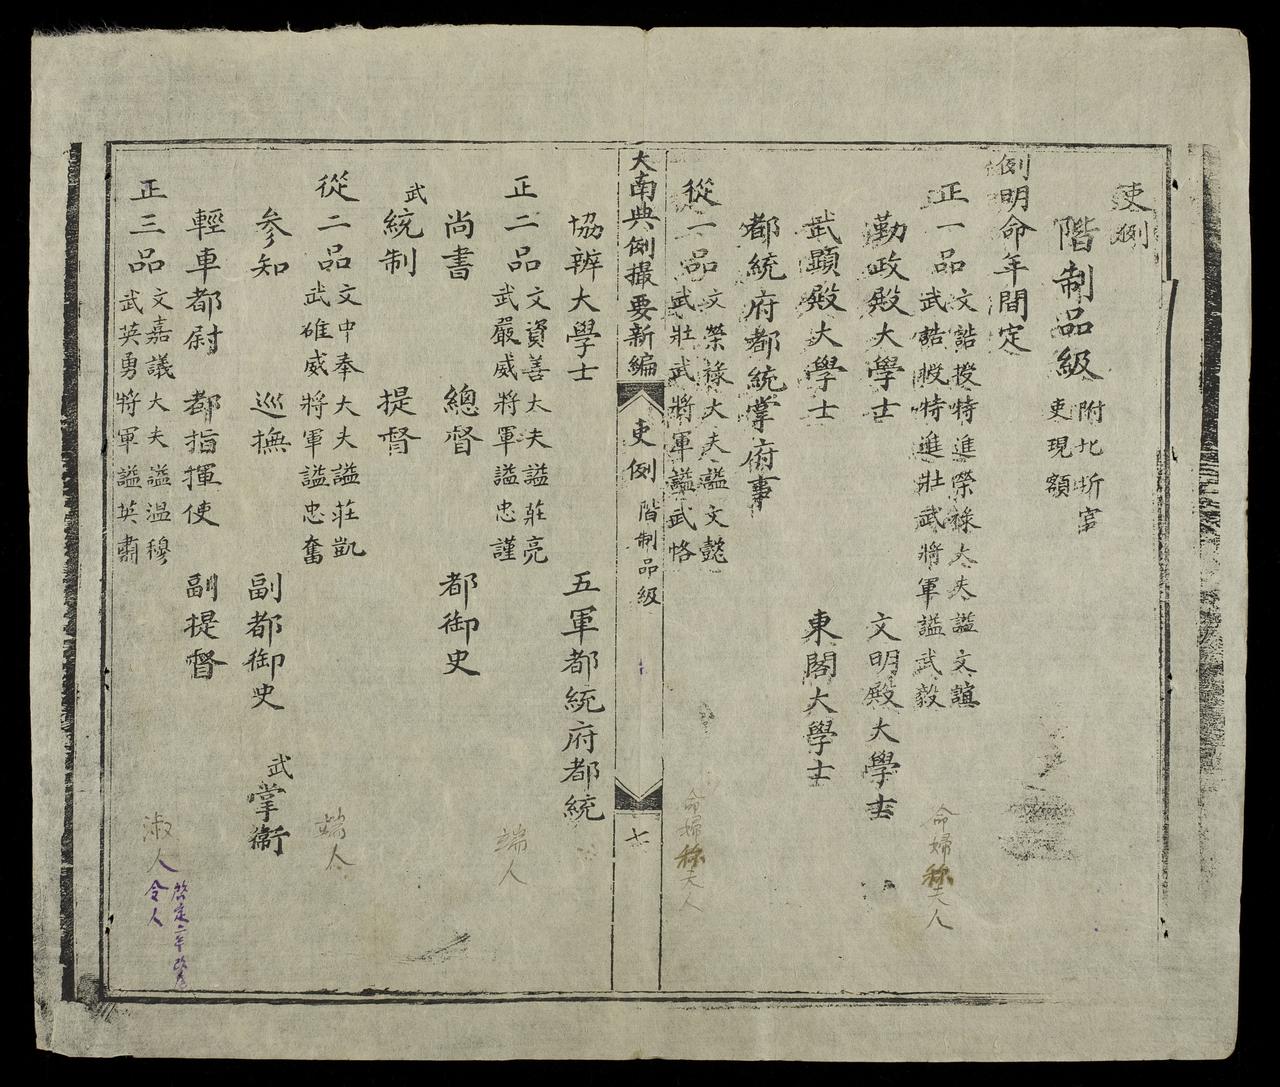 吏例
階制品級 附北圻官吏現額
例明命年間定
正一品 文誥授特進榮祿大夫謚文誼 武誥授特進壯武將軍謚武毅 命婦称夫人
勤政殿大學士 文明殿大學士
武顕殿大學士 東閣大學士
都統府都統掌府事
從一品 文榮祿大夫謚文懿 武壯武將軍謚武恪 命婦称夫人
大南典例撮要新編 吏例 階制品級 七
協辨大學士 五軍都統府都統
正二品 文資善大夫謚莊亮 武嚴威將軍謚忠謹 端人
尚書 總督 都御史
武統制 提督
從二品 文中奉大夫謚莊凱 武雄威將軍謚忠奮 端人
参知 巡撫 副都御史 武掌衛
輕車都尉 都指揮使 副提督
正三品 文嘉議大夫謚温穆 武英勇將軍謚英肅 淑人
啓定二年改為
令人